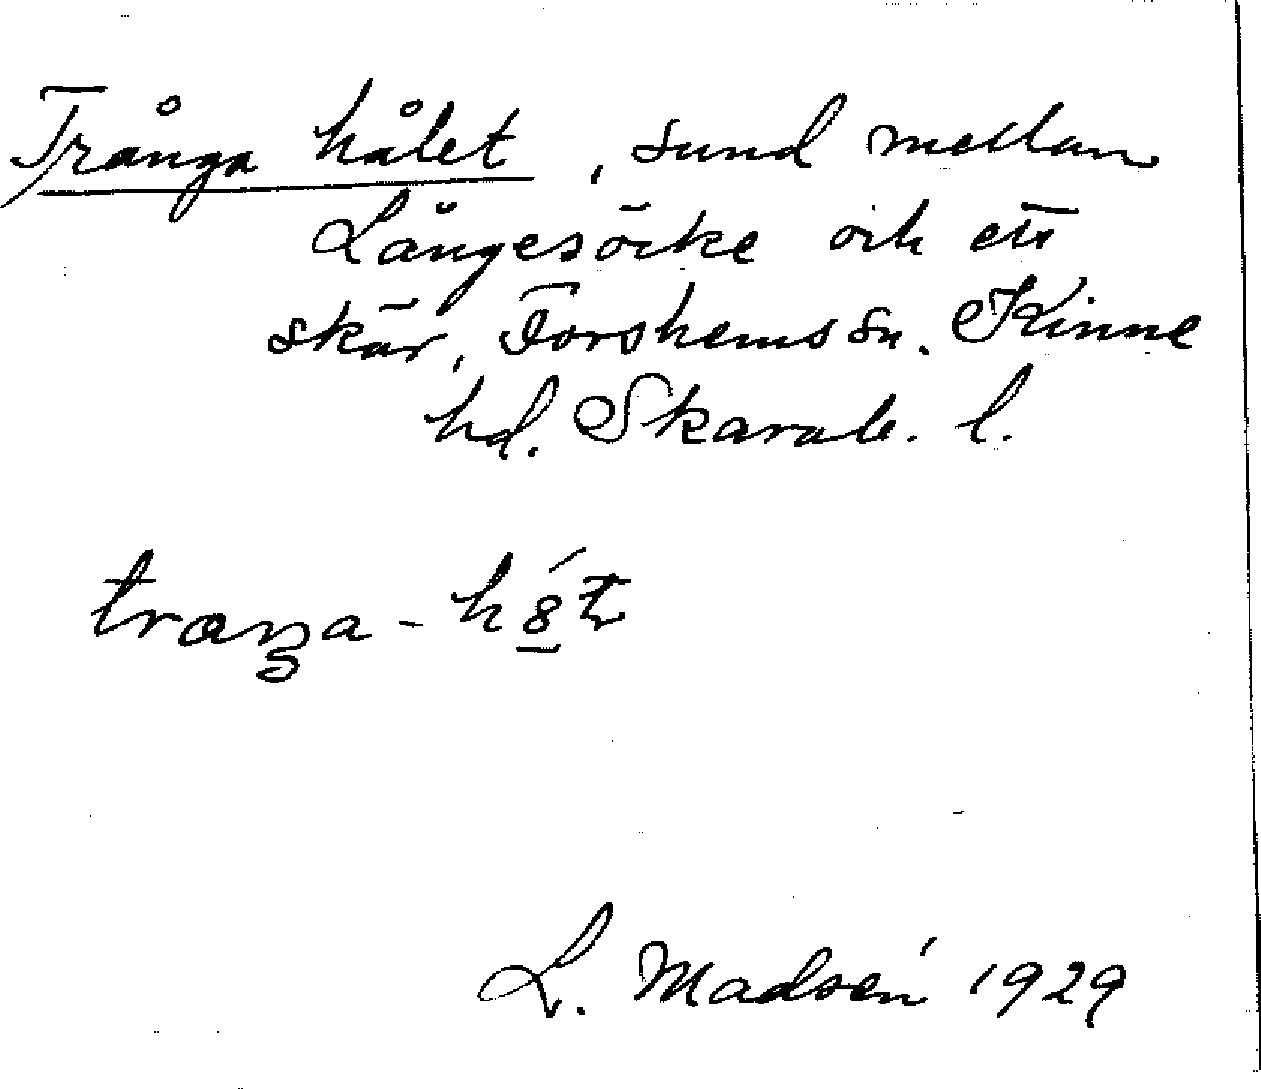 Trånga hålet, sund mellan
Långesörke och ett
skär, Forshems sn. Kinne
hd. Skarab. l.
L. Madsén 1929